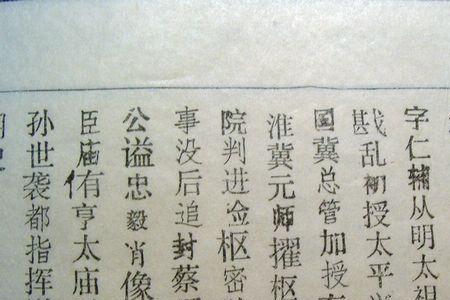 字仁辅从明太祖
戡乱初授太平兴
国冀总管加授
淮冀元师擢枢
院判进佥枢密
事没后追封蔡
公谥忠毅肖像
臣庙侑享太庙
孙世袭都指挥